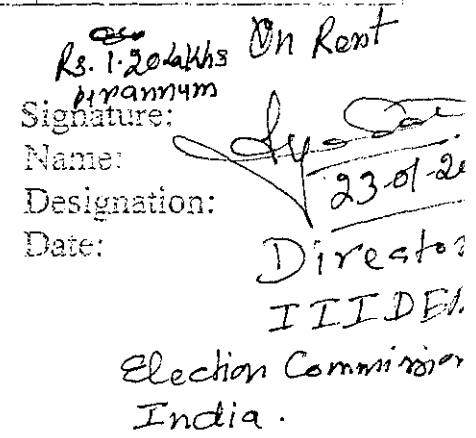 Rs. 1.20 Lakhs On Rent
per annum
Signature:
Name:
Designation:
23-01-20
Date:
Director
IIIDEM
Election Commission
India.